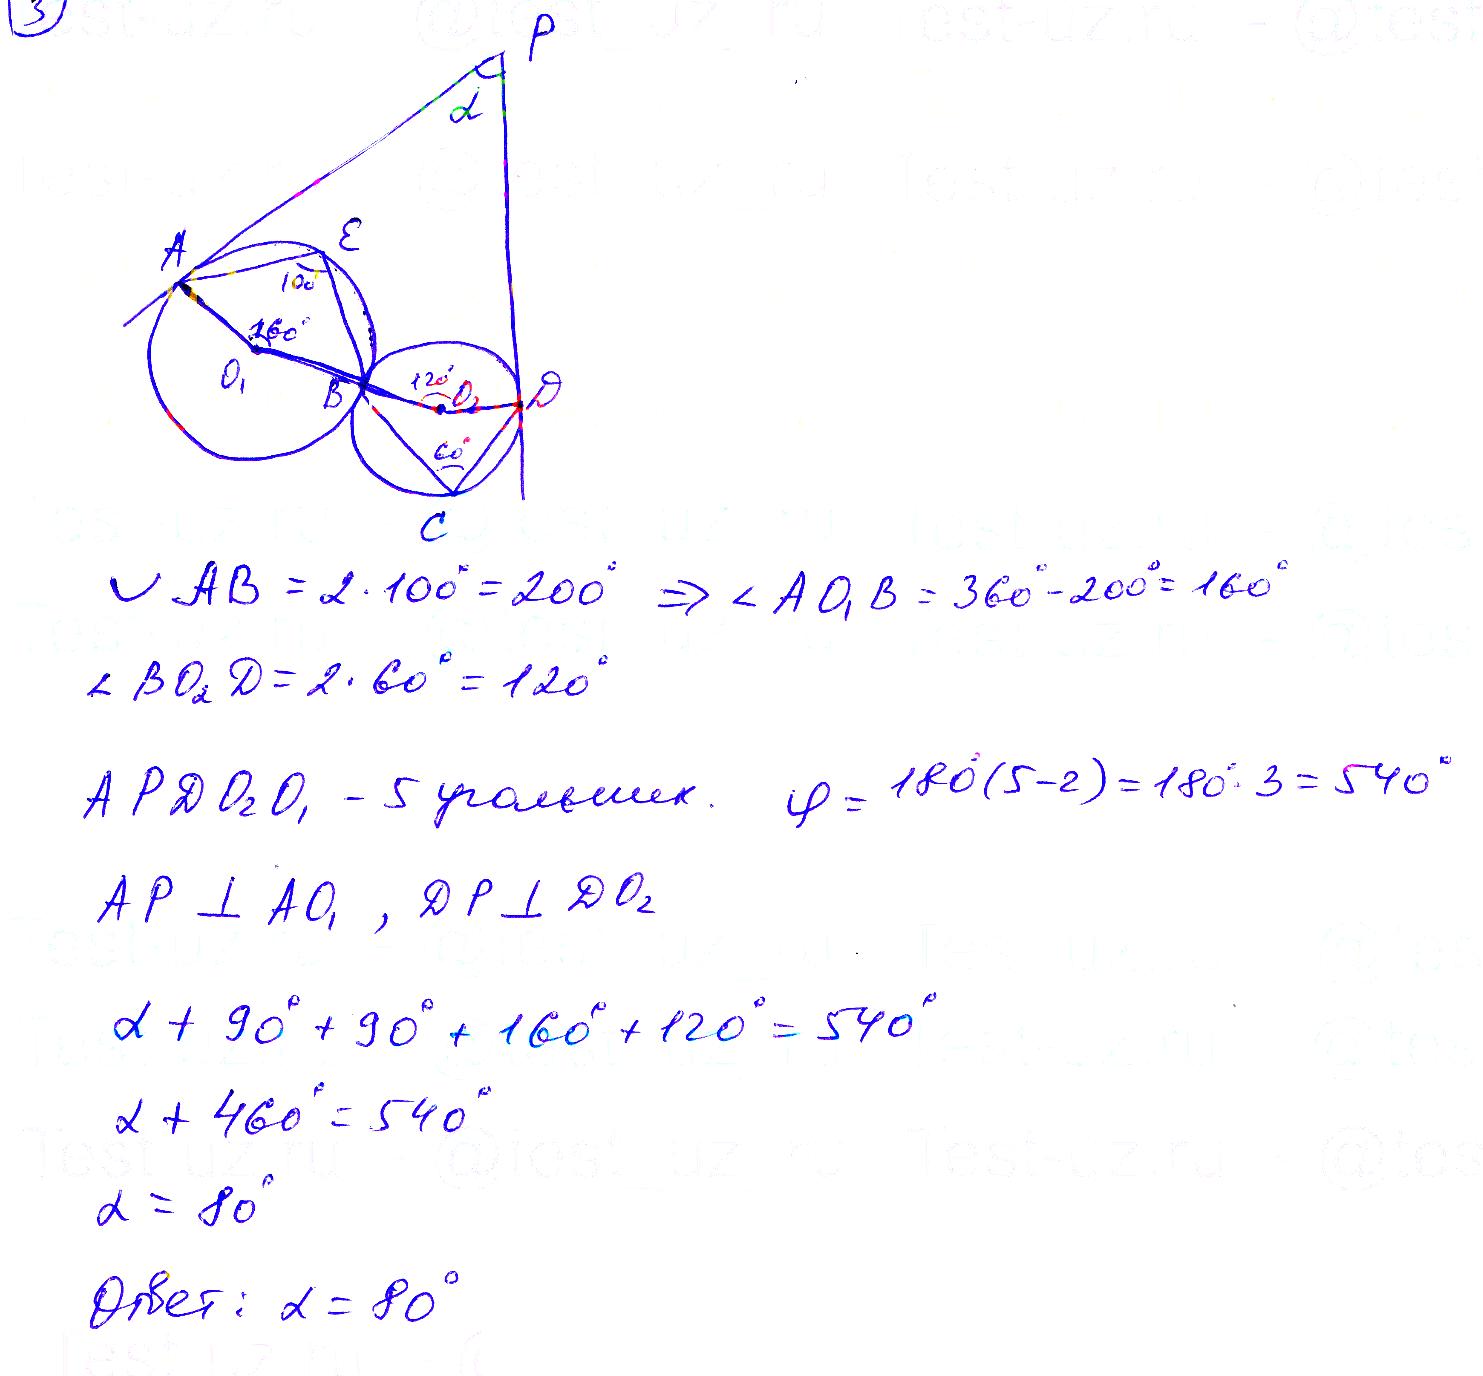 3
P
α
A
E
100°
160°
O₁
B
120°
O₂
D
60°
C
◡ AB = 2·100° = 200° => < AO₁B = 360° - 200° = 160°
< BO₂D = 2·60° = 120°
APDO₂O₁ - 5 угольник. φ = 180°(5-2) = 180°·3 = 540°
AP ⊥ AO₁ , DP ⊥ DO₂
α + 90° + 90° + 160° + 120° = 540°
α + 460° = 540°
α = 80°
Ответ: α = 80°